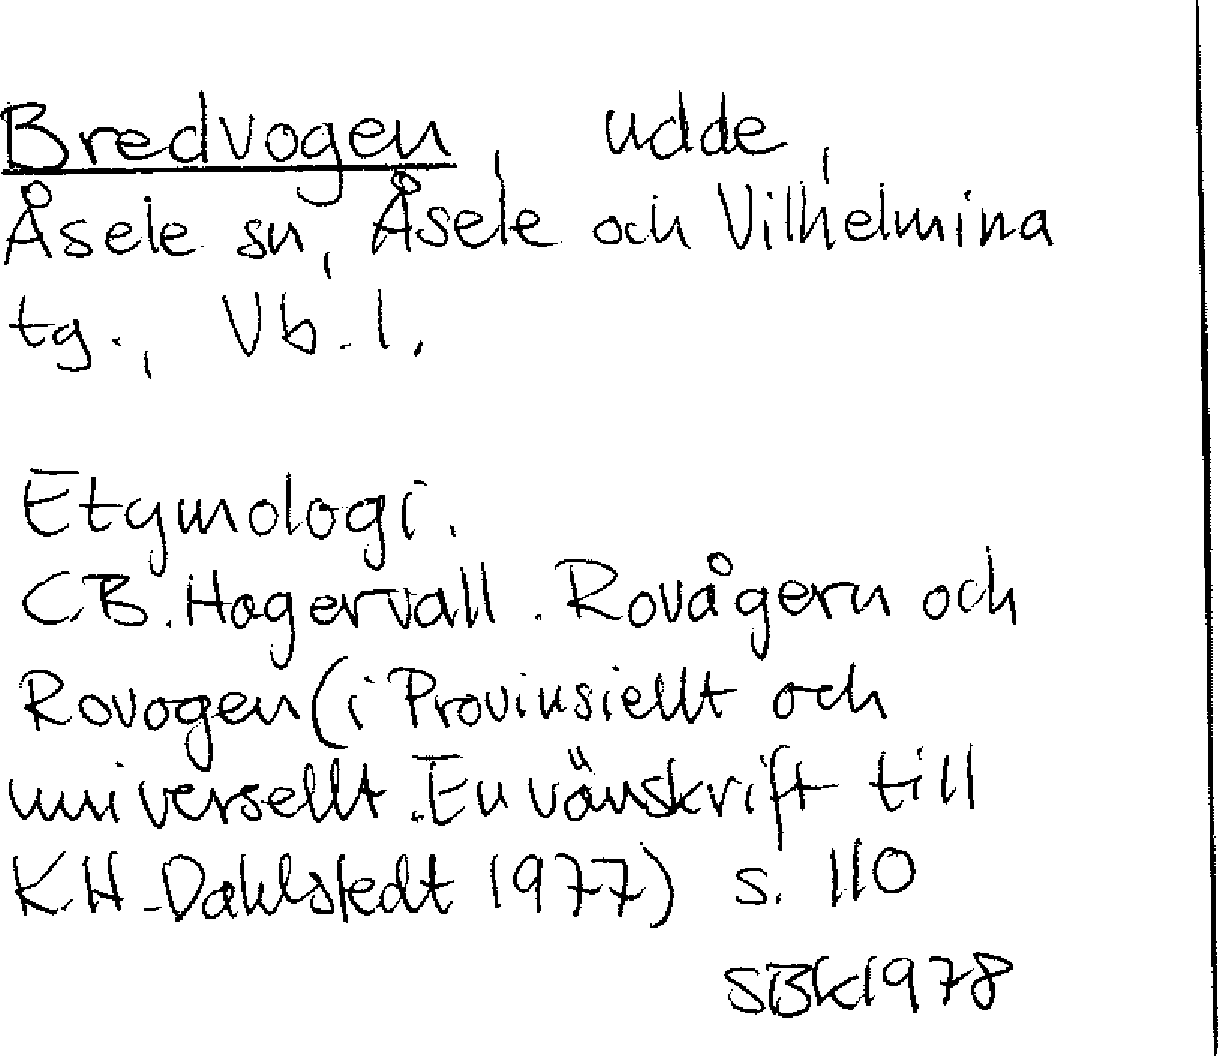 Bredvogen, udde,
Åsele sn, Åsele och Vilhelmina
tg., Vb. l.
Etymologi.
C B. Hagervall. Rovågern och
Rovogen (i Provinsiellt och
universellt. En vänskrift till
K.H. Dahlstedt 1977) s. 110
SBK1978